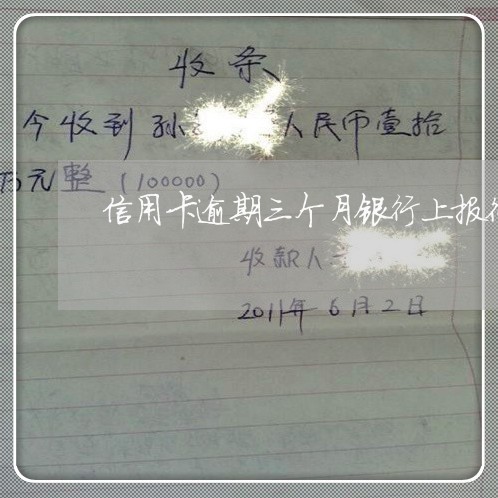 收条
今收到孙 人民币壹拾
万元整（100000）
信用卡逾期三个月银行上报
收款人
2011年6月2日